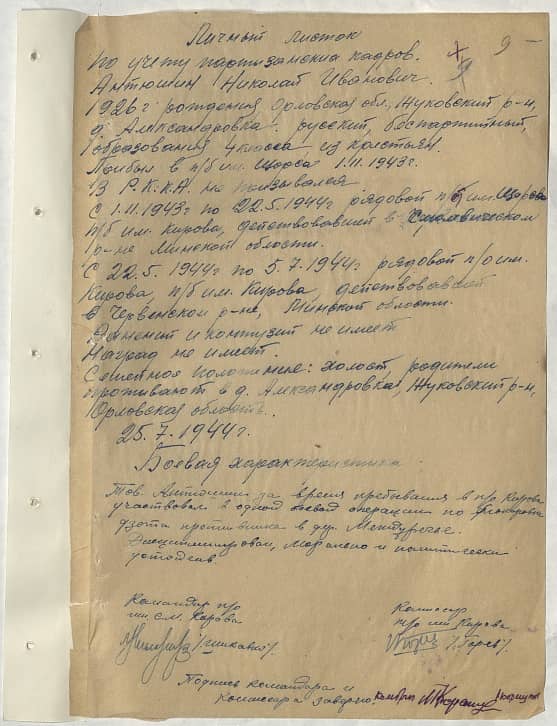 9 -
9
Личный листок
по учету партизанских кадров.
Антюшин Николай Иванович.
1926 г рождения Орловская обл, Жуковский р-н,
д Александровка. русский, беспартийный,
образования 4 класса, из крестьян.
Прибыл в п/б им. Щорса 1.11.1943г.
В Р.К.К.А. не призывался
С 1.11.1943г по 22.5.1944г рядовой п/о им. Щорса
п/б им. Кирова, действовавший в Смолевичском
р-не Минской области.
С 22.5.1944г по 5.7.1944г рядовой п/о им.
Кирова, п/б им. Кирова, действовавший
в Червенском р-не, Минской области.
Ранений и контузий не имеет
Наград не имеет.
Семейное положение: холост, родители
проживают в д. Александровка, Жуковский р-н,
Орловская область.
25.7.1944г.
Боевая характеристика
Тов. Антюшин за время пребывания в п/о Кирова
участвовал в одной боевой операции по блокировке
дзота противника в дер.
Дисциплинирован, морально и политически
устойчив.
Командир п/о
им. Кирова
Комиссар
п/о им Кирова
/Горев/
Подпись командира и
комиссара заверяю: комбриг